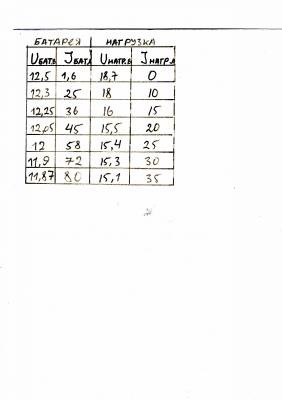 БАТАРЕЯ НАГРУЗКА
UБАТ. JБАТ. UНАГР.В JНАГР.А
12,5 1,6 18,7 0
12,3 25 18 10
12,25 36 16 15
12,05 45 15,5 20
12 58 15,4 25
11,9 72 15,3 30
11,87 80 15,1 35